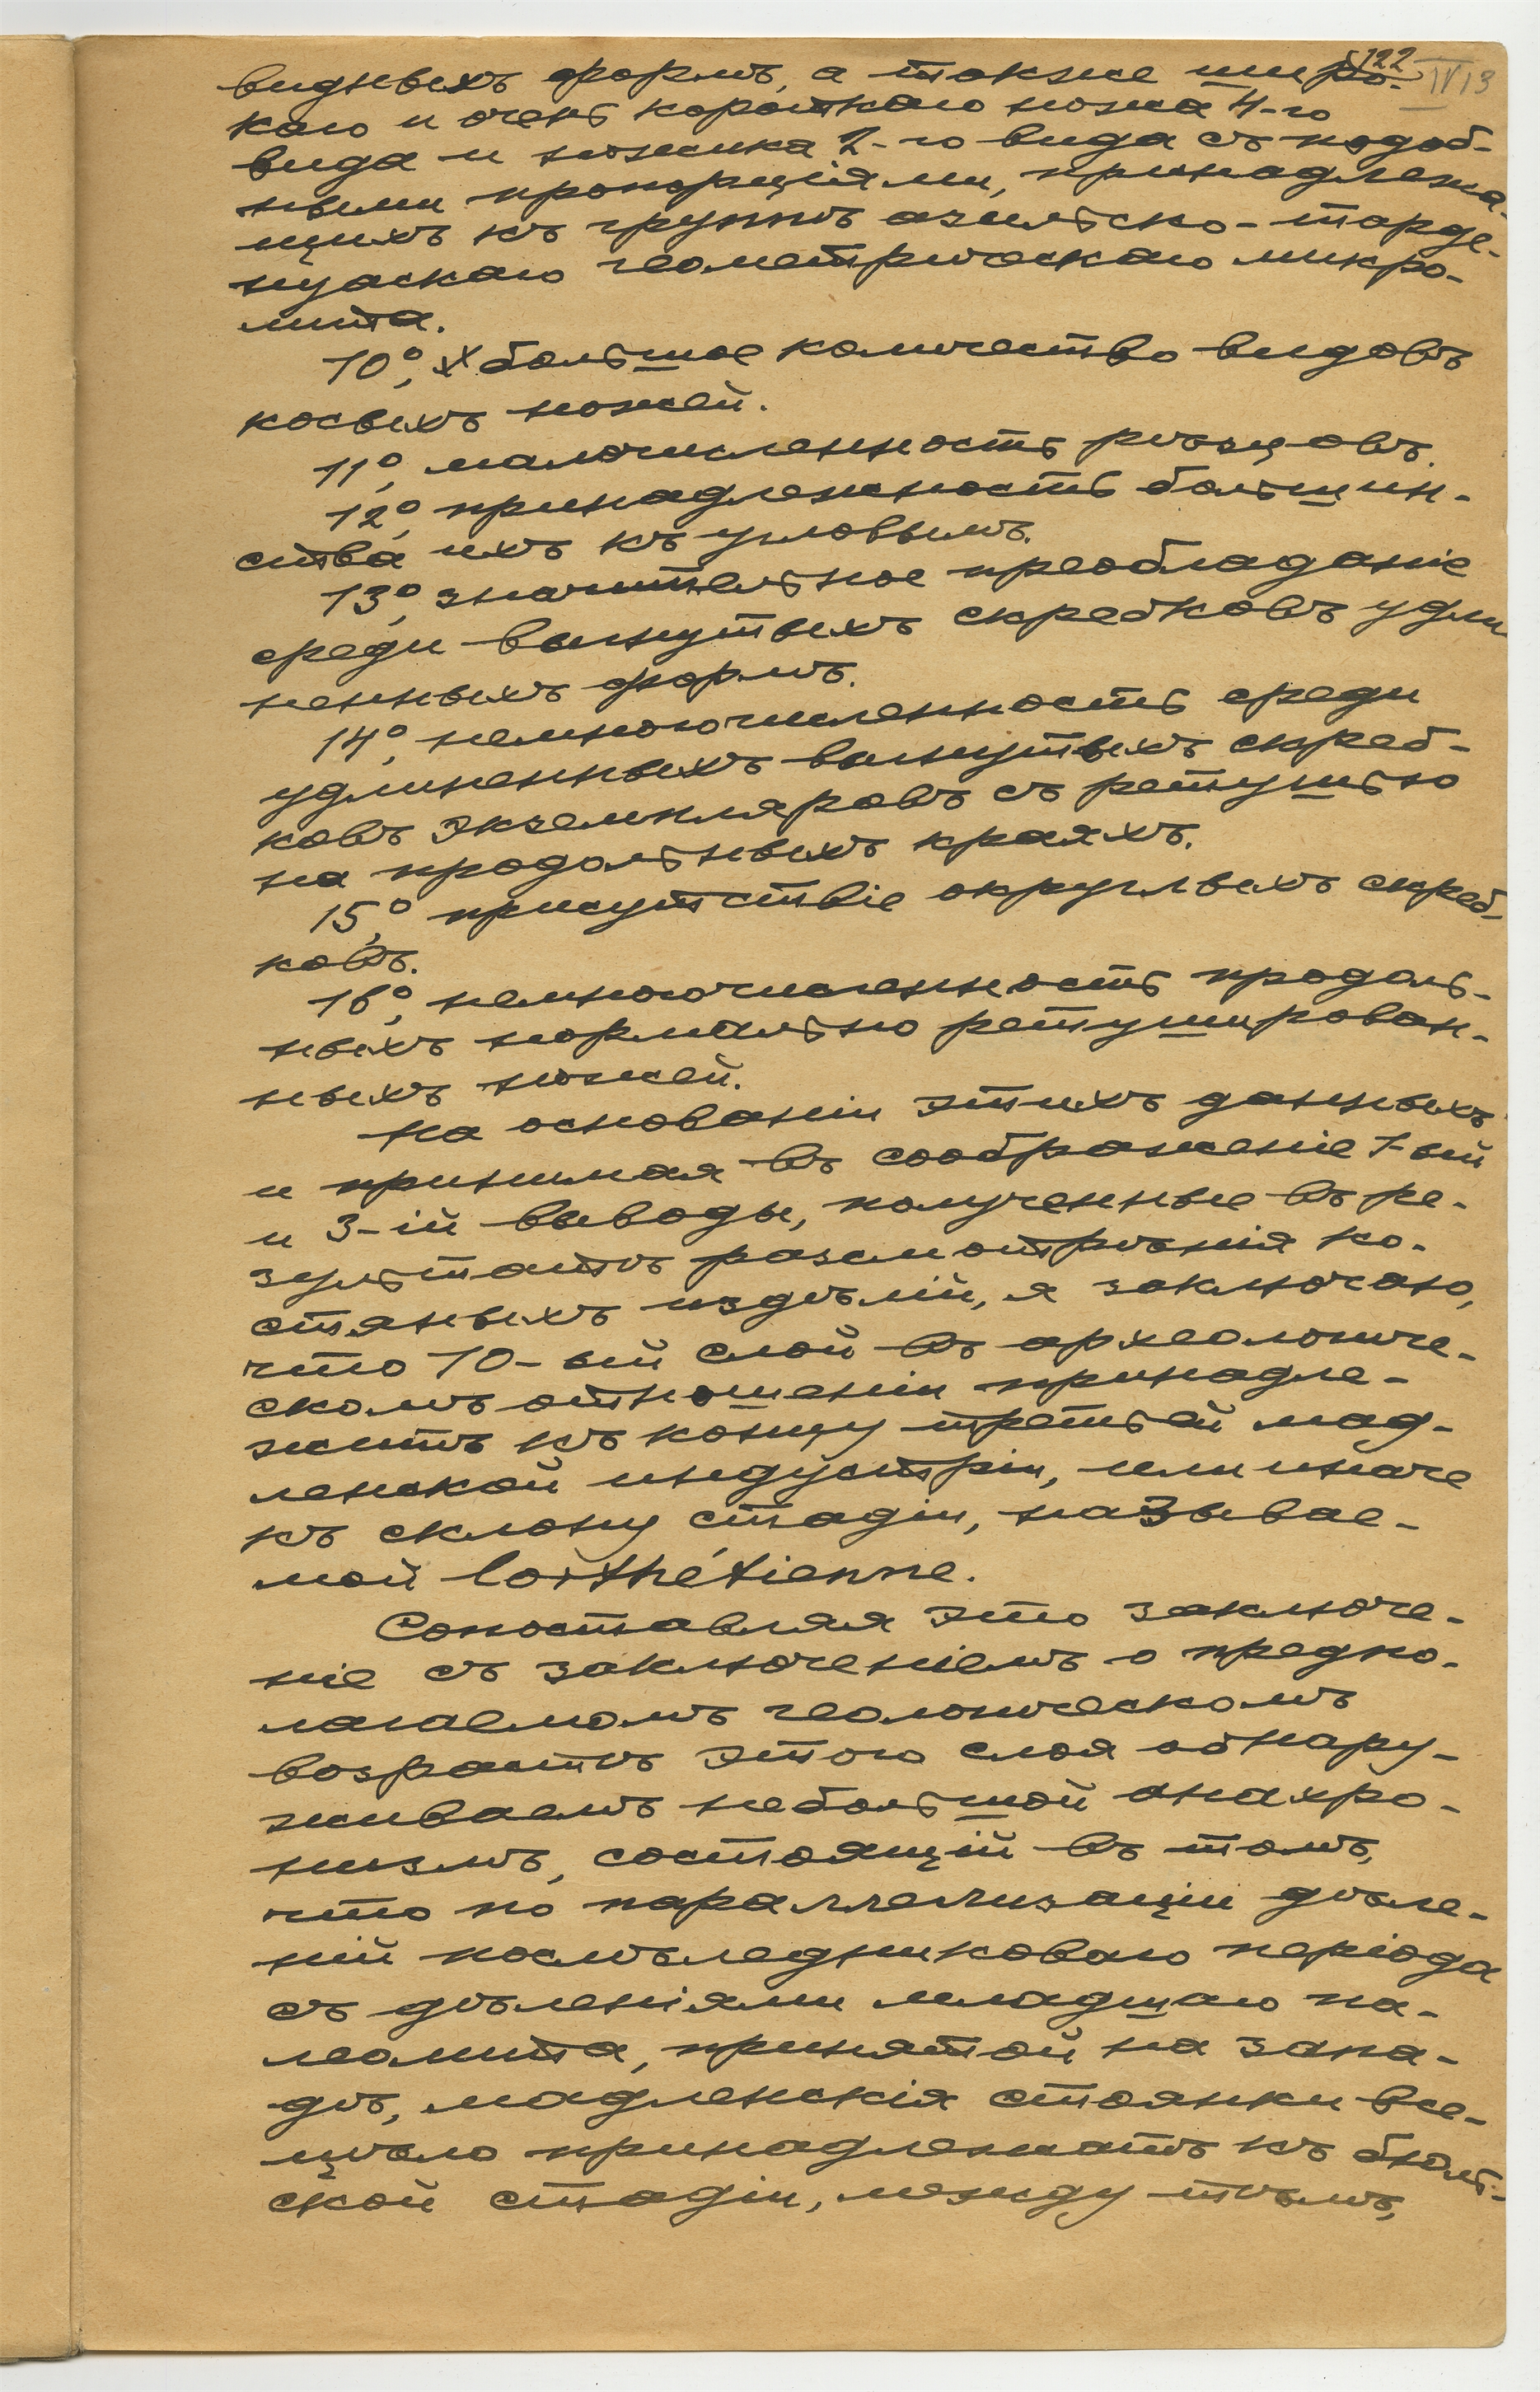 122
IV 13
видныхъ формъ, а также широ-
каго и очень короткаго ножа 4-го
вида и ножика 2-го вида съ подоб-
ными пропорціями, принадлежа-
щихъ къ группѣ азильско-тарде-
нуаскаго геометрическаго микро-
лита.
10°, большое количество видовъ
косыхъ ножей.
11°, малочисленность рѣзцовъ.
12°, принадлежность большин-
ства ихъ къ угловымъ.
13°, значительное преобладаніе
среди выпуклыхъ скребковъ удли-
ненныхъ формъ.
14°, немногочисленность среди
удлиненныхъ выпуклыхъ скреб-
ковъ экземпляровъ съ ретушью
на продольныхъ краяхъ.
15°, присутствіе округлыхъ скреб-
ковъ.
16°, немногочисленность продоль-
ныхъ нормально ретуширован-
ныхъ ножей.
На основаніи этихъ данныхъ
и принимая въ соображеніе 1-ый
и 3-ій выводы, полученные въ ре-
зультатѣ разсмотрѣнія ко-
стяныхъ издѣлій, я заключаю,
что 10-ый слой въ археологиче-
скомъ отношеніи принадле-
житъ къ концу третьей мад-
ленской индустріи, или иначе
къ склону стадіи, называе-
мой lorthétienne.
Сопоставляя это заключе-
ніе съ заключеніемъ о предпо-
лагаемомъ геологическомъ
возрастѣ этого слоя обнару-
живаемъ небольшой анахро-
низмъ, состоящій въ томъ,
что по параллелизаціи дѣле-
ній послѣледниковаго періода
съ дѣленіями младшаго па-
леолита, принятой на запа-
дѣ, мадленскія стоянки все-
цѣло принадлежатъ къ бюль-
ской стадіи, между тѣмъ,